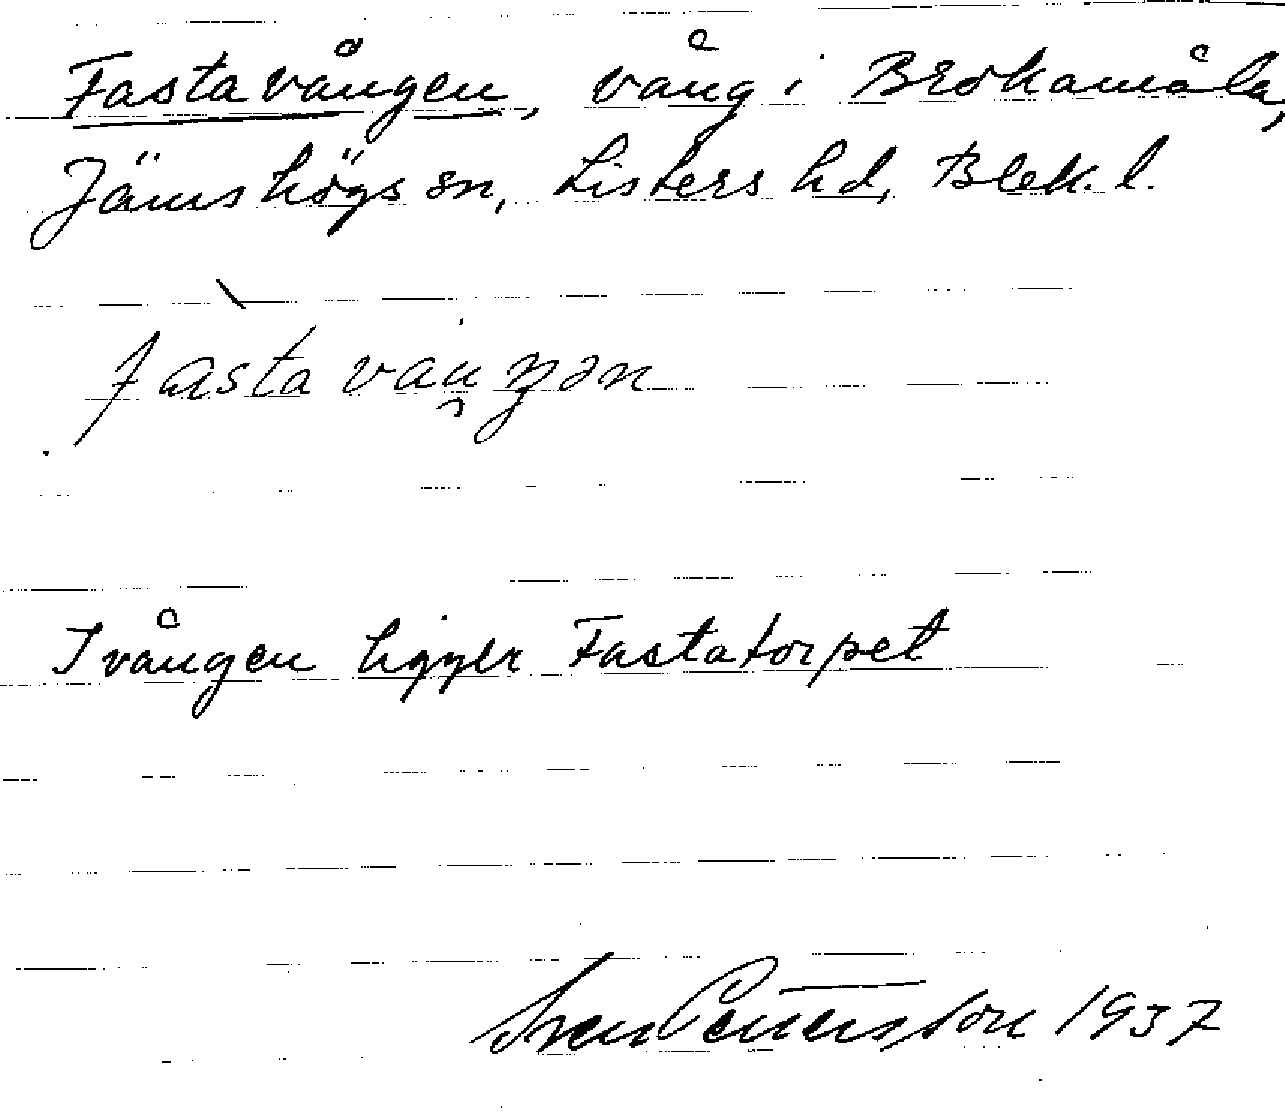 Fastavången, vång i Brokamåla,
Jämshögs sn, Listers hd, Blek. l.
I vången ligger Fastatorpet
Sven Pettersson 1937